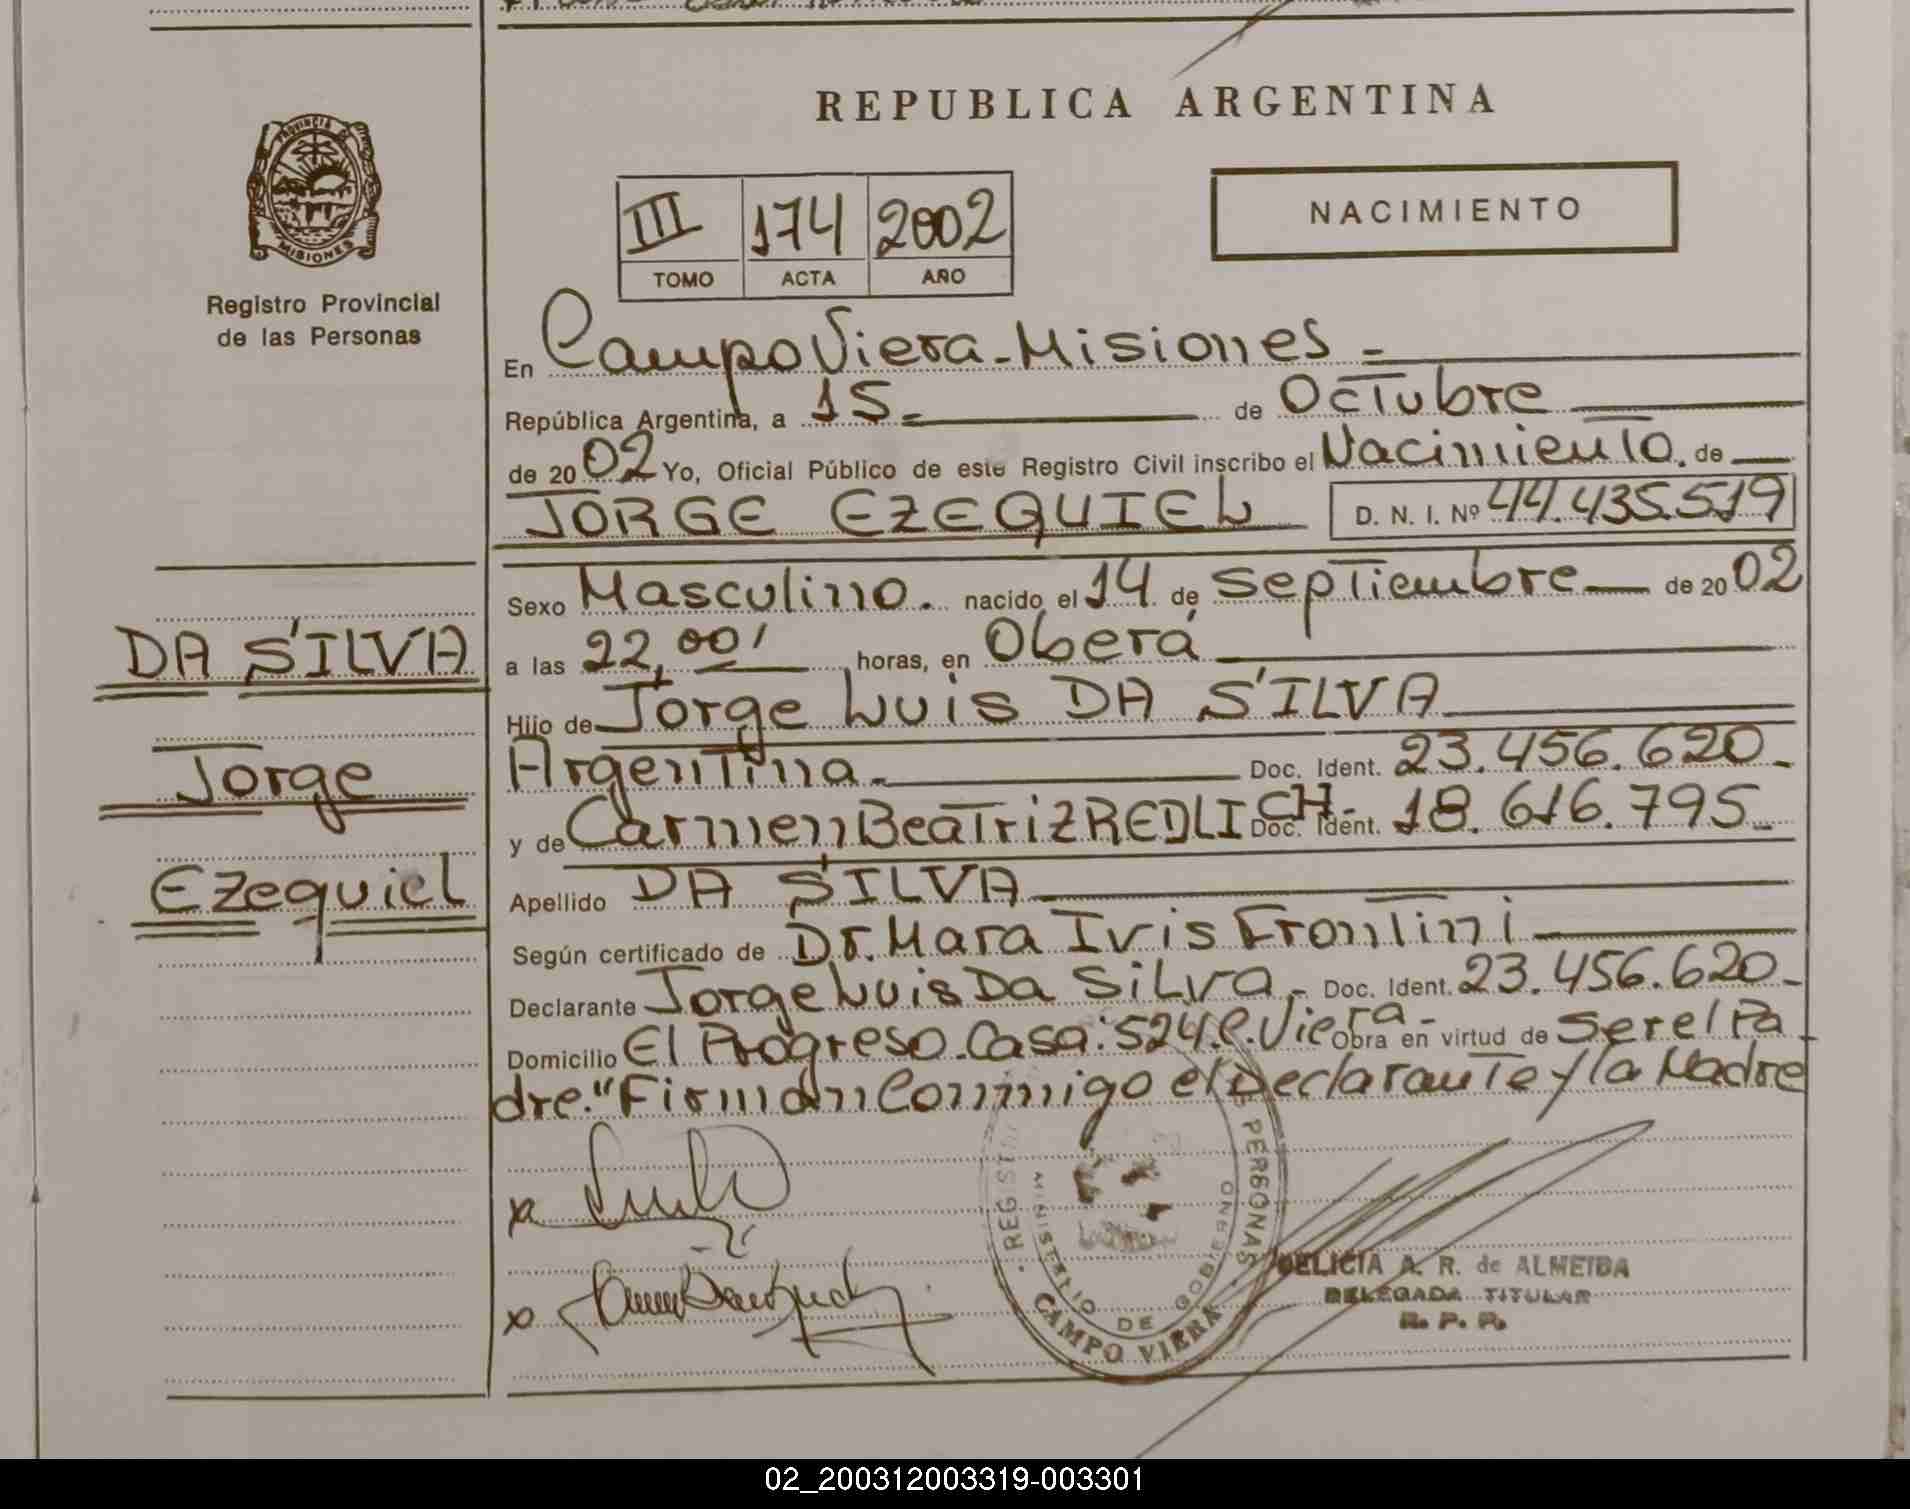 REPUBLICA ARGENTINA
PROVINCIA DE
MISIONES
Registro Provincial
de las Personas
III 174 2002
TOMO ACTA AÑO
NACIMIENTO
En Campo Viera - Misiones =
República Argentina, a 15 - de Octubre
de 2002 Yo, Oficial Público de este Registro Civil inscribo el Nacimiento. de
JORGE EZEQUIEL D. N. I. Nº 44.435.519
Sexo Masculino. nacido el 14 de Septiembre de 2002
a las 22,00' horas, en Oberá
Hijo de Jorge Luis DA SILVA
Argentina. Doc. Ident. 23.456.620-
y de Carmen Beatriz REDLICH- Doc. Ident. 18.616.795-
Apellido DA SILVA
Según certificado de Dr. Mara Iris Frontini
Declarante Jorge Luis Da Silva.- Doc. Ident. 23.456.620-
Domicilio El Progreso. Casa: 524. C. Viera- Obra en virtud de ser el Pa
dre." Firman Conmigo el Declarante y la Madre
DA SILVA
Jorge
Ezequiel
x
x
PERSONAS
MINISTERIO DE GOBIERNO
CAMPO VIERA
DELICIA A. R. de ALMEIDA
DELEGADA TITULAR
R. P. P.
02_200312003319-003301